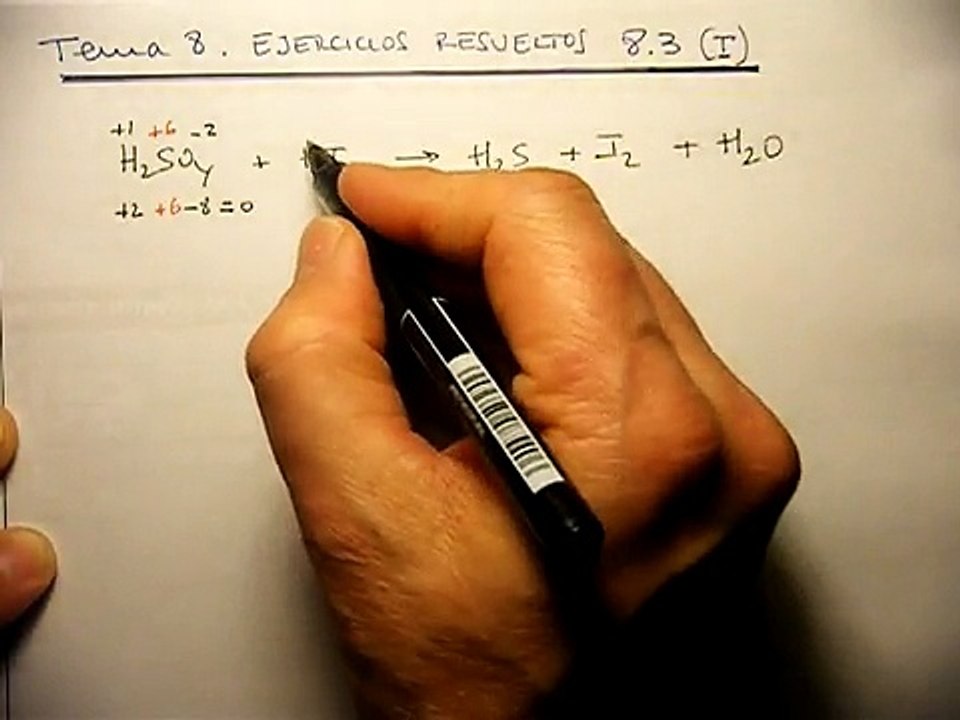 Tema 8. EJERCICIOS RESUELTOS 8.3 (I)
+1 +6 -2
H₂SO₄ + → H₂S + I₂ + H₂O
+2 +6-8=0